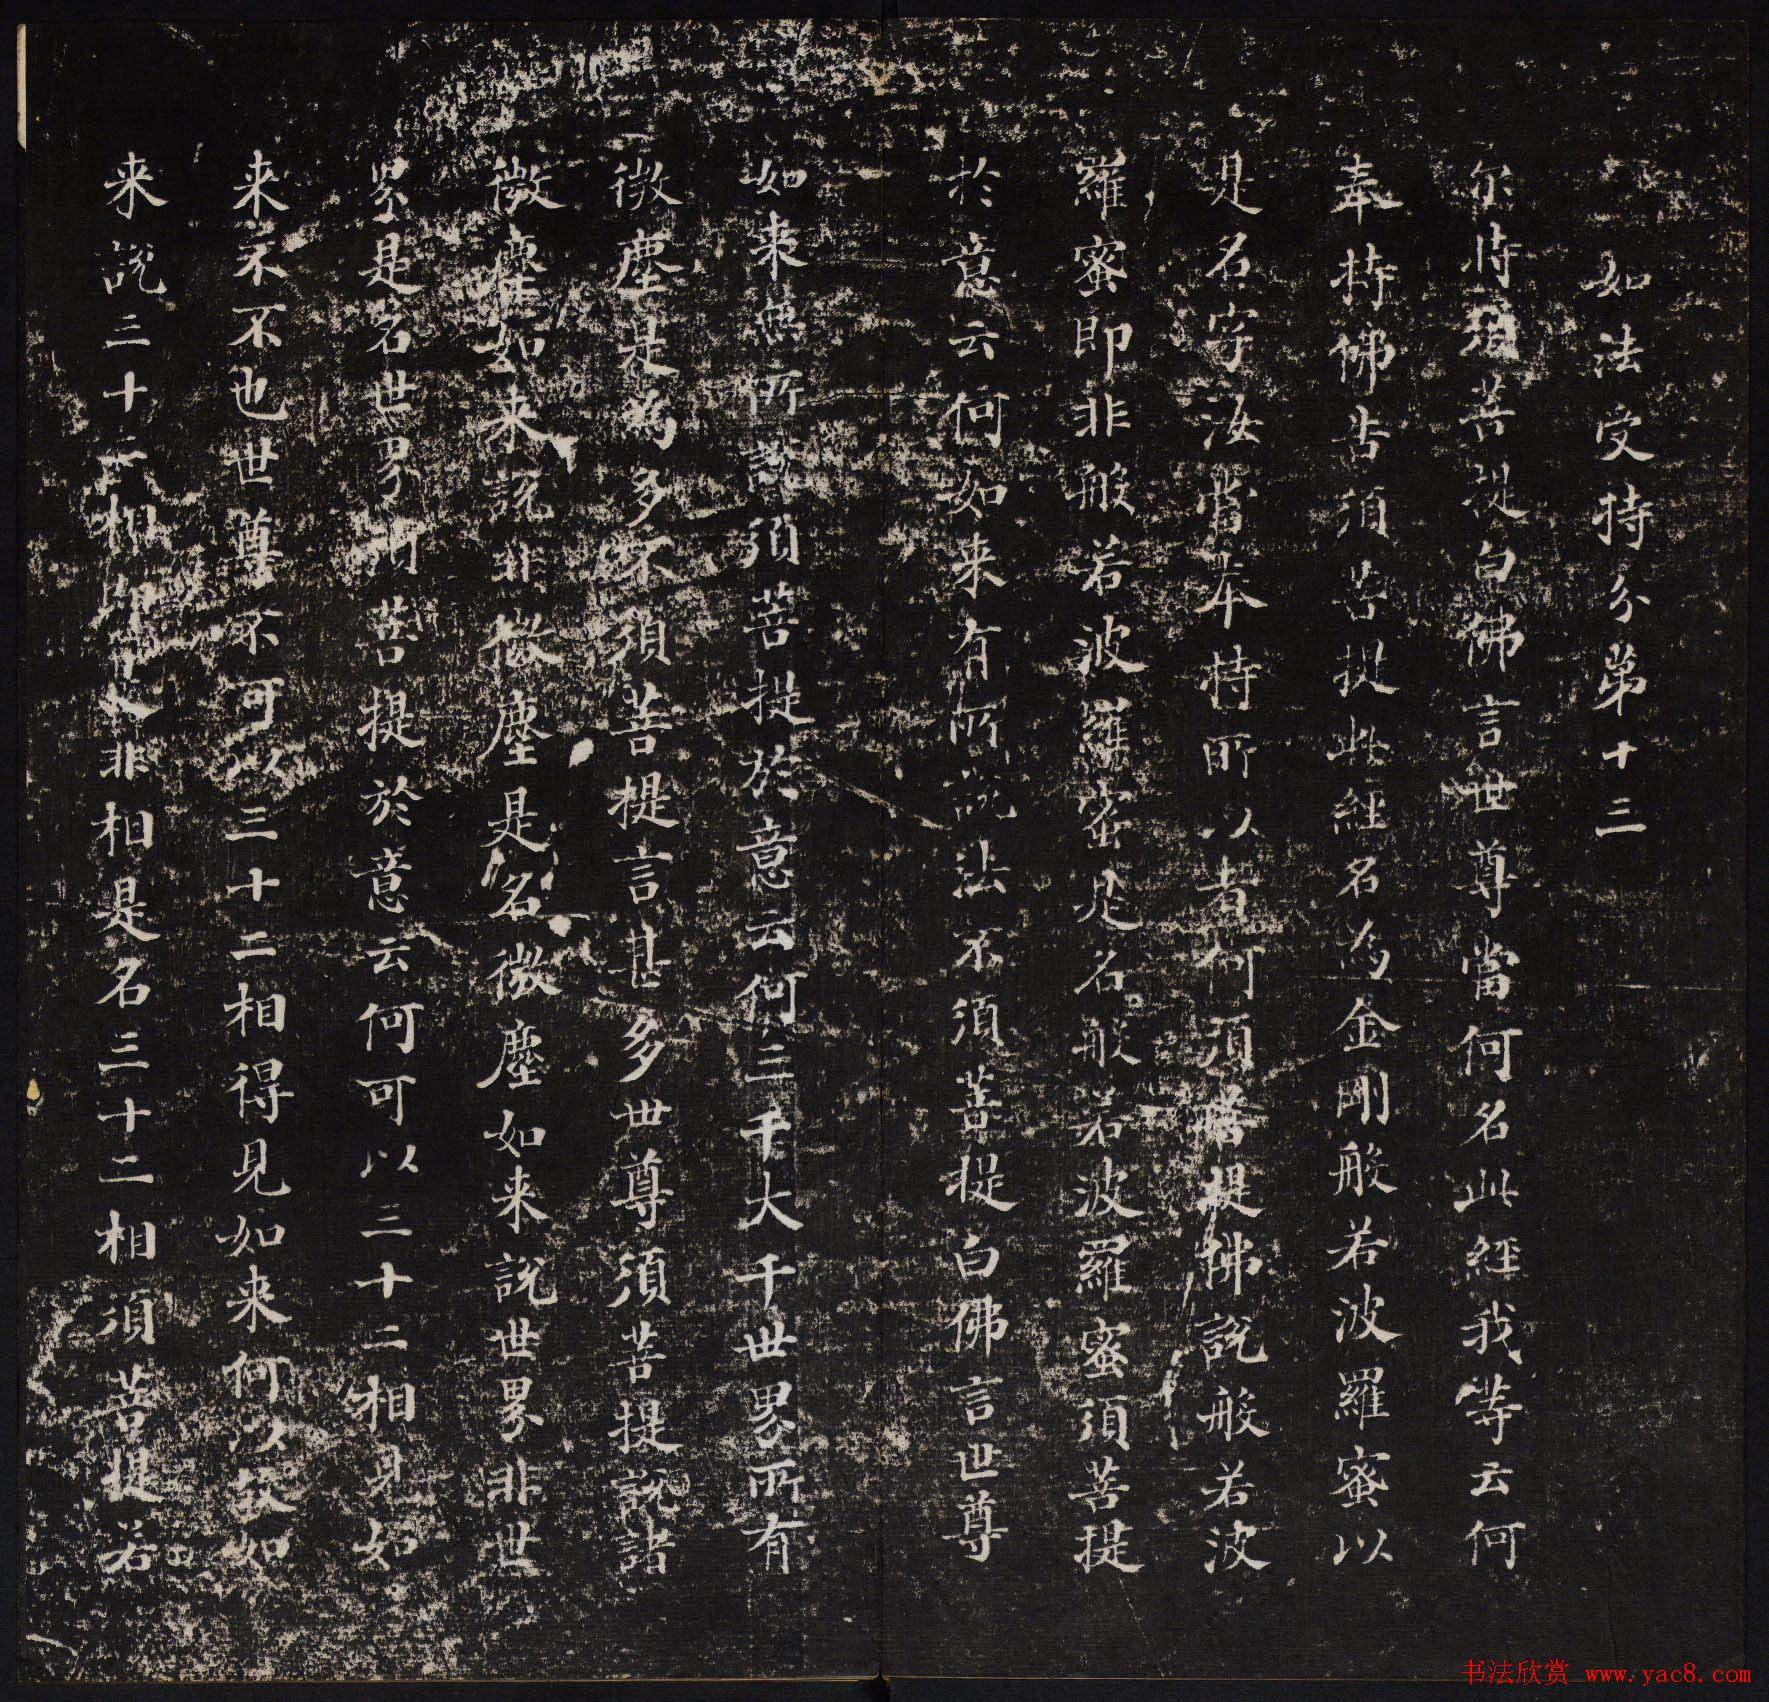 如法受持分第十三
尒時須菩提白佛言世尊當何名此經我等云何
奉持佛告須菩提此經名為金剛般若波羅蜜以
是名字汝當奉持所以者何須菩提佛說般若波
羅蜜即非般若波羅蜜是名般若波羅蜜須菩提
於意云何如来有所說法不須菩提白佛言世尊
如来無所說須菩提於意云何三千大千世界所有
微塵是為多不須菩提言甚多世尊須菩提說諸
微塵如来說非微塵是名微塵如来說世界非世
界是名世界須菩提於意云何可以三十二相見如
来不不也世尊不可以三十二相得見如来何以故如
来說三十二相即是非相是名三十二相須菩提若
书法欣赏 www.yac8.com